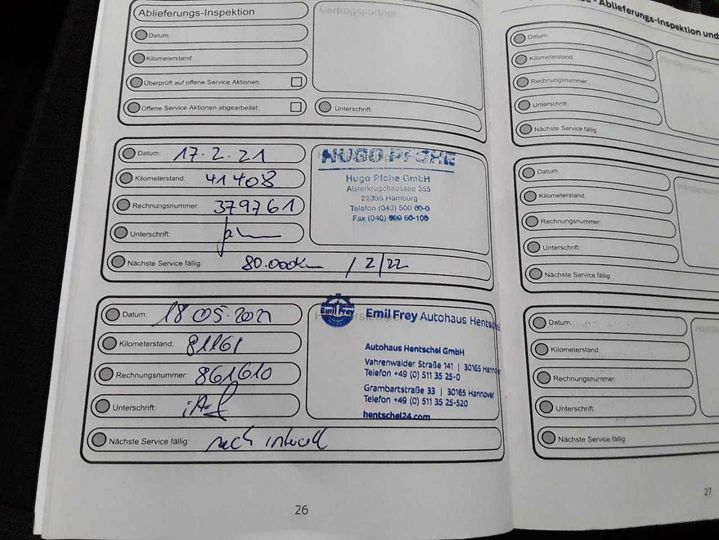 Ablieferungs-Inspektion
Datum:
Kilometerstand:
Überprüft auf offene Service Aktionen:
Offene Service Aktionen abgearbeitet:
Vertragspartner
Unterschrift:
Datum: 17.2.21
Kilometerstand: 41408
Rechnungsnummer: 379761
Unterschrift:
Nächste Service fällig: 80.000km / 2/22
HUGO PFOHE
Hugo Pfohe GmbH
Alsterkrugchaussee 355
22335 Hamburg
Telefon (040) 500 60-0
Fax (040) 500 60-100
Datum: 18 05.2021
Kilometerstand: 81161
Rechnungsnummer: 861610
Unterschrift:
Nächste Service fällig: nach intervall
Emil Frey
Emil Frey Autohaus Hentschel
Autohaus Hentschel GmbH
Vahrenwalder Straße 141 | 30165 Hannov
Telefon +49 (0) 511 35 25-0
Grambartstraße 33 | 30165 Hannover
Telefon +49 (0) 511 35 25-520
hentschel24.com
26
- Ablieferungs-Inspektion und
Datum:
Kilometerstand:
Rechnungsnummer:
Unterschrift:
Nächste Service fällig:
Datum:
Kilometerstand:
Rechnungsnummer:
Unterschrift:
Nächste Service fällig:
Datum:
Kilometerstand:
Rechnungsnummer:
Unterschrift:
Nächste Service fällig:
27